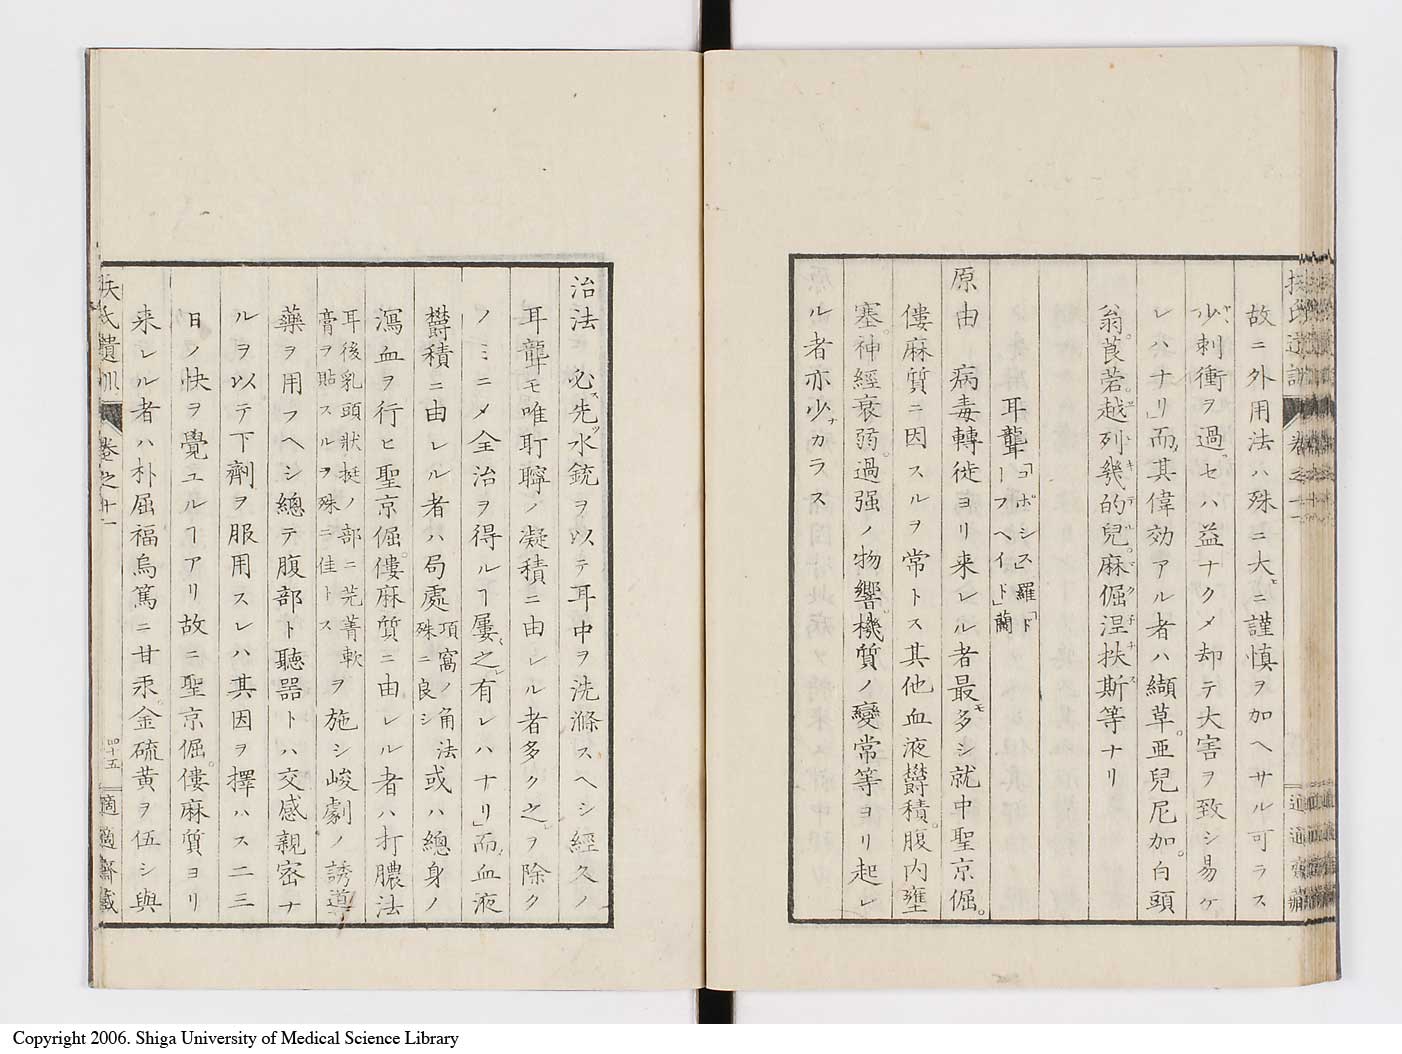 故ニ外用法ハ殊ニ大ニ謹慎ヲ加ヘサル可ラス
少刺衝ヲ過セハ益ナクメ却テ大害ヲ致シ易ケ
レハナリ」而其偉効アル者ハ纈草。亜兒尼加。白頭
翁。莨菪。越列幾的兒。麻倔涅扶斯等ナリ
耳聾「コボシス」羅「ドーフヘイド」蘭
原由 病毒轉徙ヨリ来レル者最多シ就中聖京倔。
僂麻質ニ因スルヲ常トス其他血液欝積。腹内壅
塞。神經衰弱。過强ノ物響。機質ノ變常等ヨリ起レ
ル者亦少カラス
治法 必先水銃ヲ以テ耳中ヲ洗滌スヘシ經久ノ
耳聾モ唯耵聹ノ凝積ニ由レル者多ク之ヲ除ク
ノミニメ全治ヲ得ルヿ屢之有レハナリ」而血液
欝積ニ由レル者ハ局處項窩ノ角法殊ニ良シ或ハ總身ノ
瀉血ヲ行ヒ聖京倔。僂麻質ニ由レル者ハ打膿法
耳後乳頭狀挺ノ部ニ芫菁軟膏ヲ貼スルヲ殊ニ佳トスヲ施シ峻劇ノ誘導
藥ヲ用フヘシ總テ腹部ト聴器トハ交感親密ナ
ルヲ以テ下劑ヲ服用スレハ其因ヲ擇ハス二三
日ノ快ヲ覺ユルヿアリ故ニ聖京倔。僂麻質ヨリ
来レル者ハ朴屈福烏篤ニ甘汞。金硫黄ヲ伍シ與
扶氏遺訓 卷之廿一
四十五 適適齋藏
Copyright 2006. Shiga University of Medical Science Library